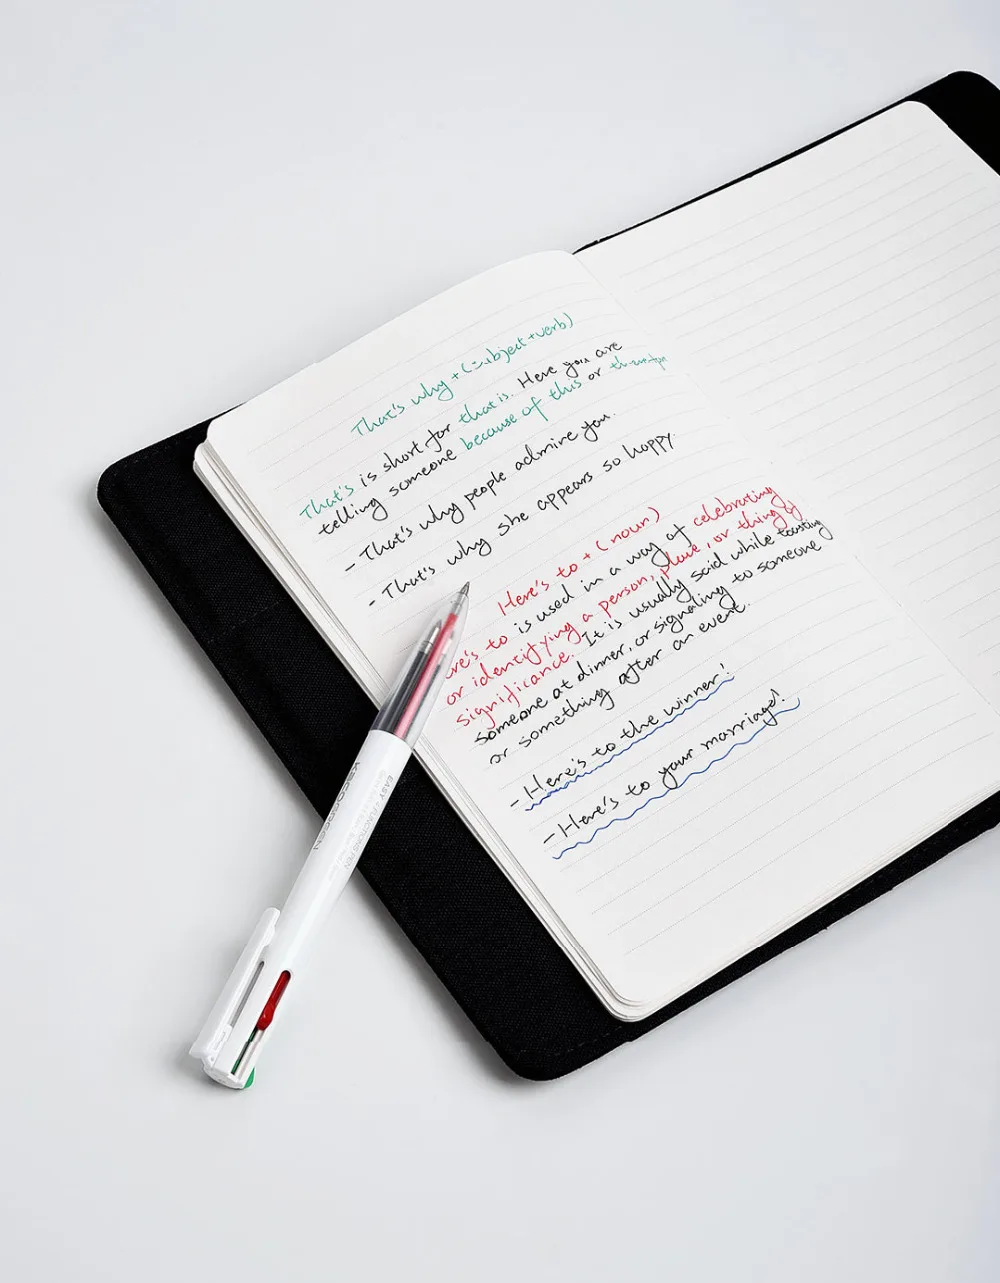 That's why + (subject + verb)
That's is short for that is. Here you are
telling someone because of this or
- That's why people admire you.
- That's why she appears so happy.
Here's to + (noun)
is used in a way of celebrating
or identifying a person, place, or thing of
significance. It is usually said while toasting
someone at dinner, or signaling to someone
or something after an event.
- Here's to the winner!
- Here's to your marriage!
KACOGREEN